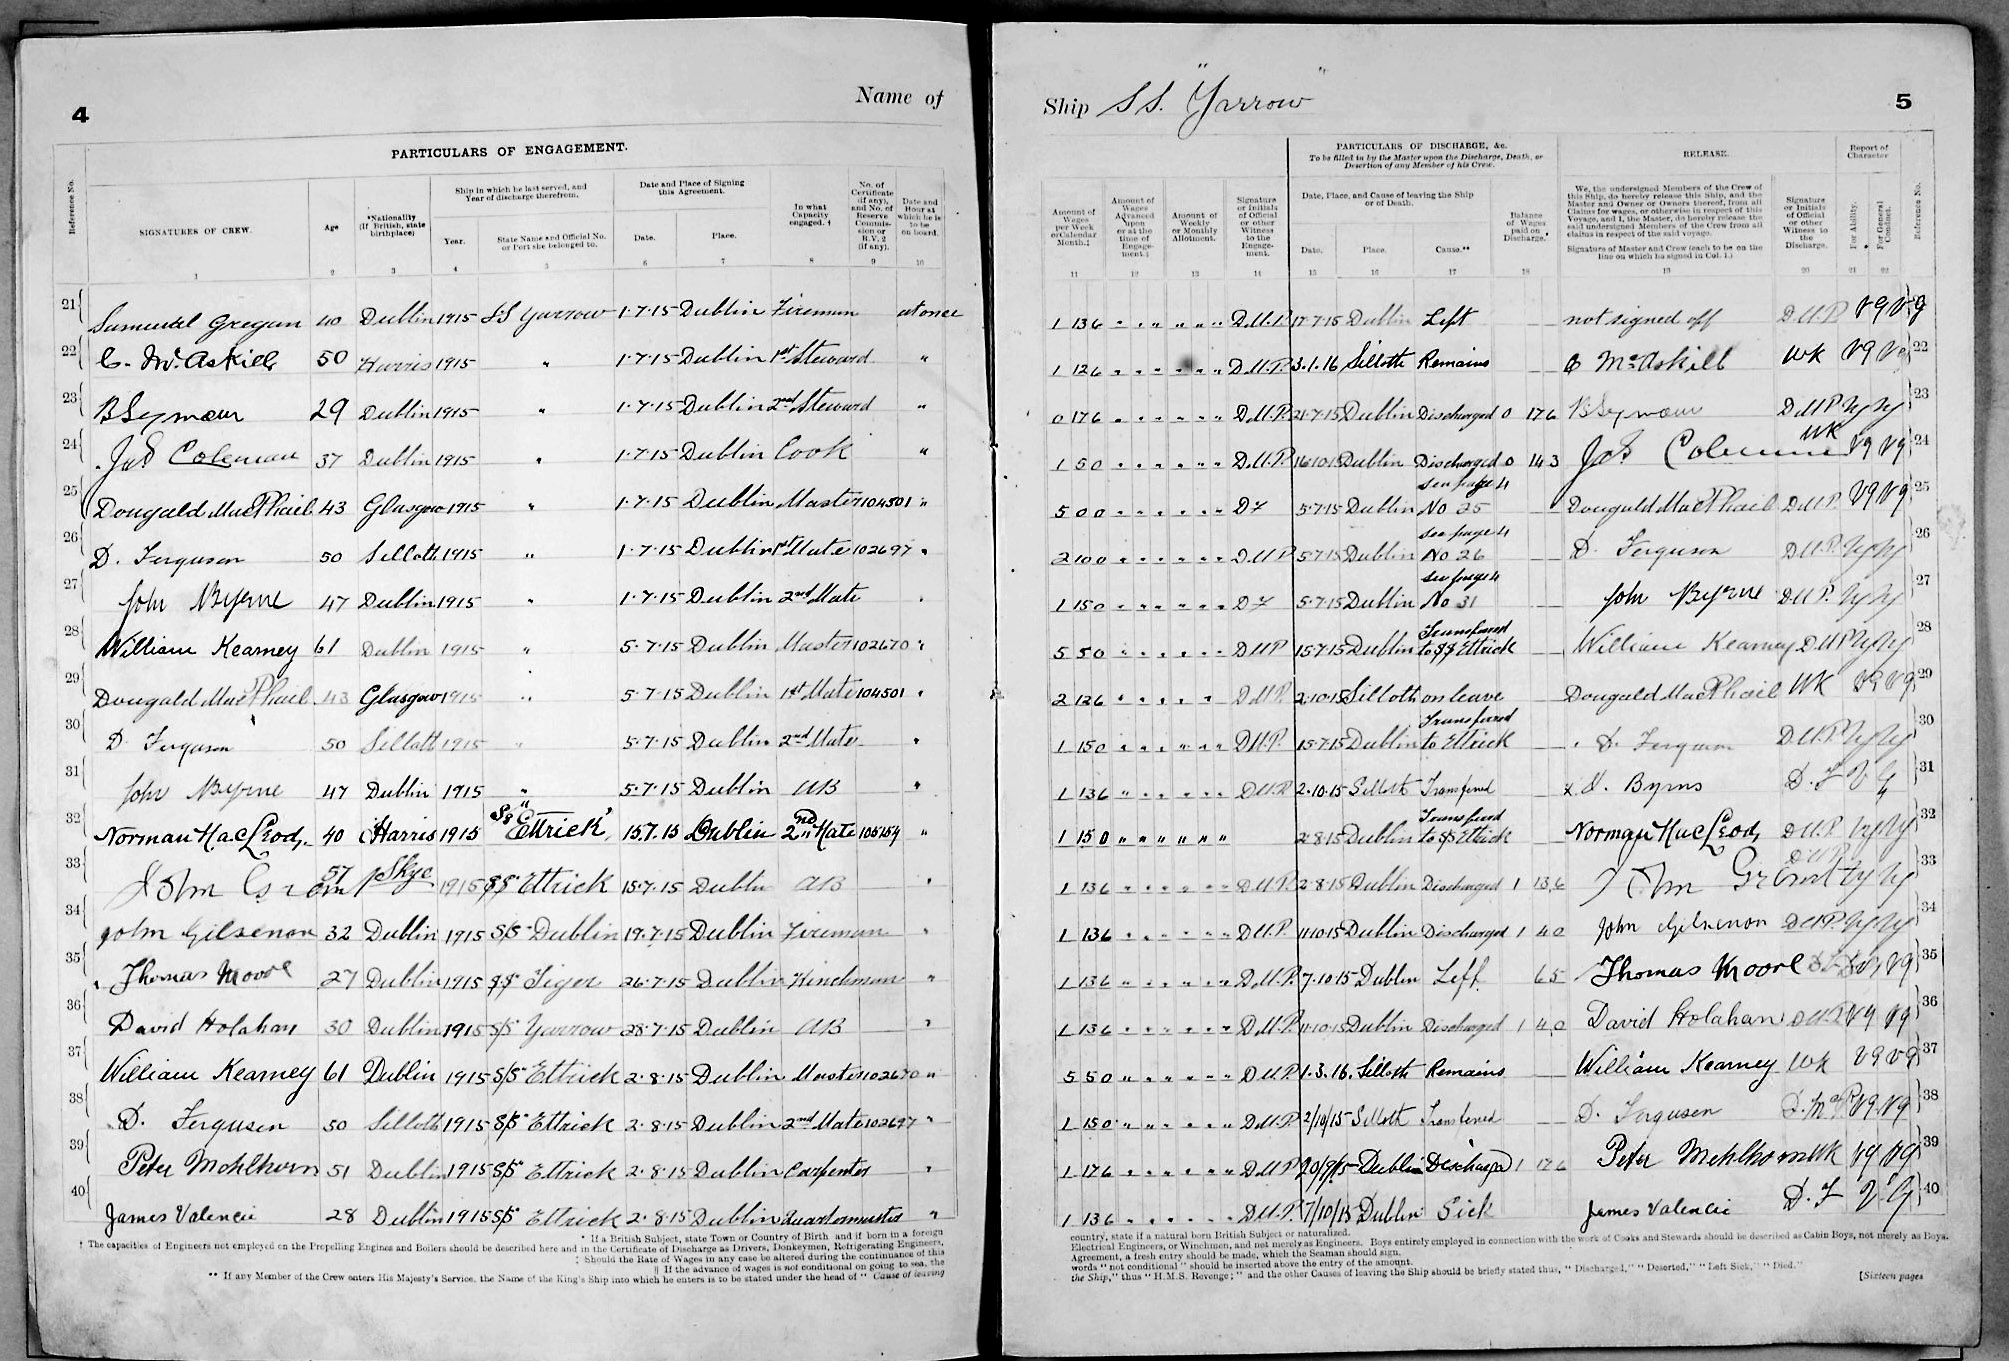 4
Name of
PARTICULARS OF ENGAGEMENT.
Reference No.
SIGNATURES OF CREW.
Age
*Nationality (If British, state birthplace)
Ship in which he last served, and Year of discharge therefrom.
Year.
State Name and Official No. or Port she belonged to.
Date and Place of Signing this Agreement.
Date.
Place.
In what Capacity engaged. †
No. of Certificate (if any), and No. of Reserve Commission or R.V. 2 (if any).
Date and Hour at which he is to be on board.
1 2 3 4 5 6 7 8 9 10
21 Samuel Gregan 40 Dublin 1915 SS Yarrow 1·7·15 Dublin Fireman at once
22 C. McAskill 50 Harris 1915 " 1·7·15 Dublin 1st Steward "
23 B Seymour 29 Dublin 1915 " 1·7·15 Dublin 2nd Steward "
24 Jas Coleman 37 Dublin 1915 " 1·7·15 Dublin Cook "
25 Dougald MacPhail 43 Glasgow 1915 " 1·7·15 Dublin Master 104501 "
26 D. Ferguson 50 Silloth 1915 " 1·7·15 Dublin 1st Mate 102697 "
27 John Byrne 47 Dublin 1915 " 1·7·15 Dublin 2nd Mate "
28 William Kearney 61 Dublin 1915 " 5·7·15 Dublin Master 102670 "
29 Dougald MacPhail 43 Glasgow 1915 " 5·7·15 Dublin 1st Mate 104501 "
30 D. Ferguson 50 Silloth 1915 " 5·7·15 Dublin 2nd Mate "
31 John Byrne 47 Dublin 1915 " 5·7·15 Dublin AB "
32 Norman MacLeod 40 Harris 1915 SS "Ettrick" 15.7.15 Dublin 2nd Mate 105254 "
33 John Grant 57 Skye 1915 SS Ettrick 15·7·15 Dublin AB "
34 John Gilsenon 32 Dublin 1915 S/S Dublin 19·7·15 Dublin Fireman "
35 Thomas Moore 27 Dublin 1915 SS Tiger 26·7·15 Dublin Winchman "
36 David Holahan 30 Dublin 1915 S/S Yarrow 28·7·15 Dublin AB "
37 William Kearney 61 Dublin 1915 S/S Ettrick 2·8·15 Dublin Master 102670 "
38 D. Ferguson 50 Silloth 1915 S/S Ettrick 2·8·15 Dublin 2nd Mate 102697 "
39 Peter Mehlhorn 51 Dublin 1915 S/S Ettrick 2·8·15 Dublin Carpenter "
40 James Valencie 28 Dublin 1915 S/S Ettrick 2·8·15 Dublin Quartermaster "
* If a British Subject, state Town or Country of Birth and if born in a foreign
† The capacities of Engineers not employed on the Propelling Engines and Boilers should be described here and in the Certificate of Discharge as Drivers, Donkeymen, Refrigerating Engineers,
‡ Should the Rate of Wages in any case be altered during the continuance of this
‖ If the advance of wages is not conditional on going to sea, the
** If any Member of the Crew enters His Majesty's Service, the Name of the King's Ship into which he enters is to be stated under the head of "Cause of leaving
Ship SS. "Yarrow"
5
Amount of Wages per Week or Calendar Month.‡
Amount of Wages Advanced upon or at the time of Engagement.‖
Amount of Weekly or Monthly Allotment.
Signature or Initials of Official or other Witness to the Engagement.
PARTICULARS OF DISCHARGE, &c.
To be filled in by the Master upon the Discharge, Death, or Desertion of any Member of his Crew.
Date, Place, and Cause of leaving the Ship or of Death.
Date.
Place.
Cause.**
Balance of Wages paid on Discharge.
RELEASE.
We, the undersigned Members of the Crew of this Ship, do hereby release this Ship, and the Master and Owner or Owners thereof, from all Claims for wages, or otherwise in respect of this Voyage, and I, the Master, do hereby release the said undersigned Members of the Crew from all claims in respect of the said voyage.
Signature of Master and Crew (each to be on the line on which he signed in Col. 1.)
Signature or Initials of Official or other Witness to the Discharge.
Report of Character
For Ability.
For General Conduct.
Reference No.
11 12 13 14 15 16 17 18 19 20 21 22
1 13 6 D.U.P. 17·7·15 Dublin Left not signed off D.U.P. VG VG
1 12 6 D.U.P. 3.1.16 Silloth Remains C McAskill WK VG VG 22
0 17 6 D.U.P. 21·7·15 Dublin Discharged 0 17 6 B Seymour D.U.P. VG VG 23
1 5 0 D.U.P. 16·10·15 Dublin Discharged 0 14 3 Jas Coleman WK VG VG 24
5 0 0 DF 5·7·15 Dublin see page 4 No 25 Dougald MacPhail D.U.P. VG VG 25
2 10 0 D.U.P. 5·7·15 Dublin see page 4 No 26 D. Ferguson D.U.P. VG VG 26
1 15 0 DF 5·7·15 Dublin see page 4 No 31 John Byrne D.U.P. VG VG 27
5 5 0 D.U.P. 15·7·15 Dublin Transferred to SS Ettrick William Kearney D.U.P. VG VG 28
2 12 6 D.U.P. 2·10·15 Silloth on leave Dougald MacPhail WK VG VG 29
1 15 0 D.U.P. 15·7·15 Dublin Transferred to Ettrick D. Ferguson D.U.P. VG VG 30
1 13 6 D.U.P. 2·10·15 Silloth Transferred x J. Byrns D.F VG 31
1 15 0 2·8·15 Dublin Transferred to SS Ettrick Norman MacLeod D.U.P. VG VG 32
1 13 6 D.U.P. 2·8·15 Dublin Discharged 1 13 6 John Grant D.U.P. VG VG 33
1 13 6 D.U.P. 11·10·15 Dublin Discharged 1 4 0 John Gilsenon D.U.P. VG VG 34
1 13 6 D.U.P. 7·10·15 Dublin Left 6 5 Thomas Moore VG 35
1 13 6 D.U.P. 11·10·15 Dublin Discharged 1 4 0 David Holahan D.U.P. VG VG 36
5 5 0 D.U.P. 1·3·16. Silloth Remains William Kearney WK VG VG 37
1 15 0 D.U.P. 2/10/15 Silloth Transferred D. Ferguson D. McP VG VG 38
1 17 6 D.U.P. 20/9/15 Dublin Discharged 1 17 6 Peter Mehlhorn WK VG VG 39
1 13 6 D.U.P. 7/10/15 Dublin Sick James Valencie D.F VG 40
country, state if a natural born British Subject or naturalized.
Electrical Engineers, or Winchmen, and not merely as Engineers. Boys entirely employed in connection with the work of Cooks and Stewards should be described as Cabin Boys, not merely as Boys.
Agreement, a fresh entry should be made, which the Seaman should sign.
words "not conditional" should be inserted above the entry of the amount.
the Ship," thus "H.M.S. Revenge;" and the other Causes of leaving the Ship should be briefly stated thus, "Discharged," "Deserted," "Left Sick," "Died."
[Sixteen pages